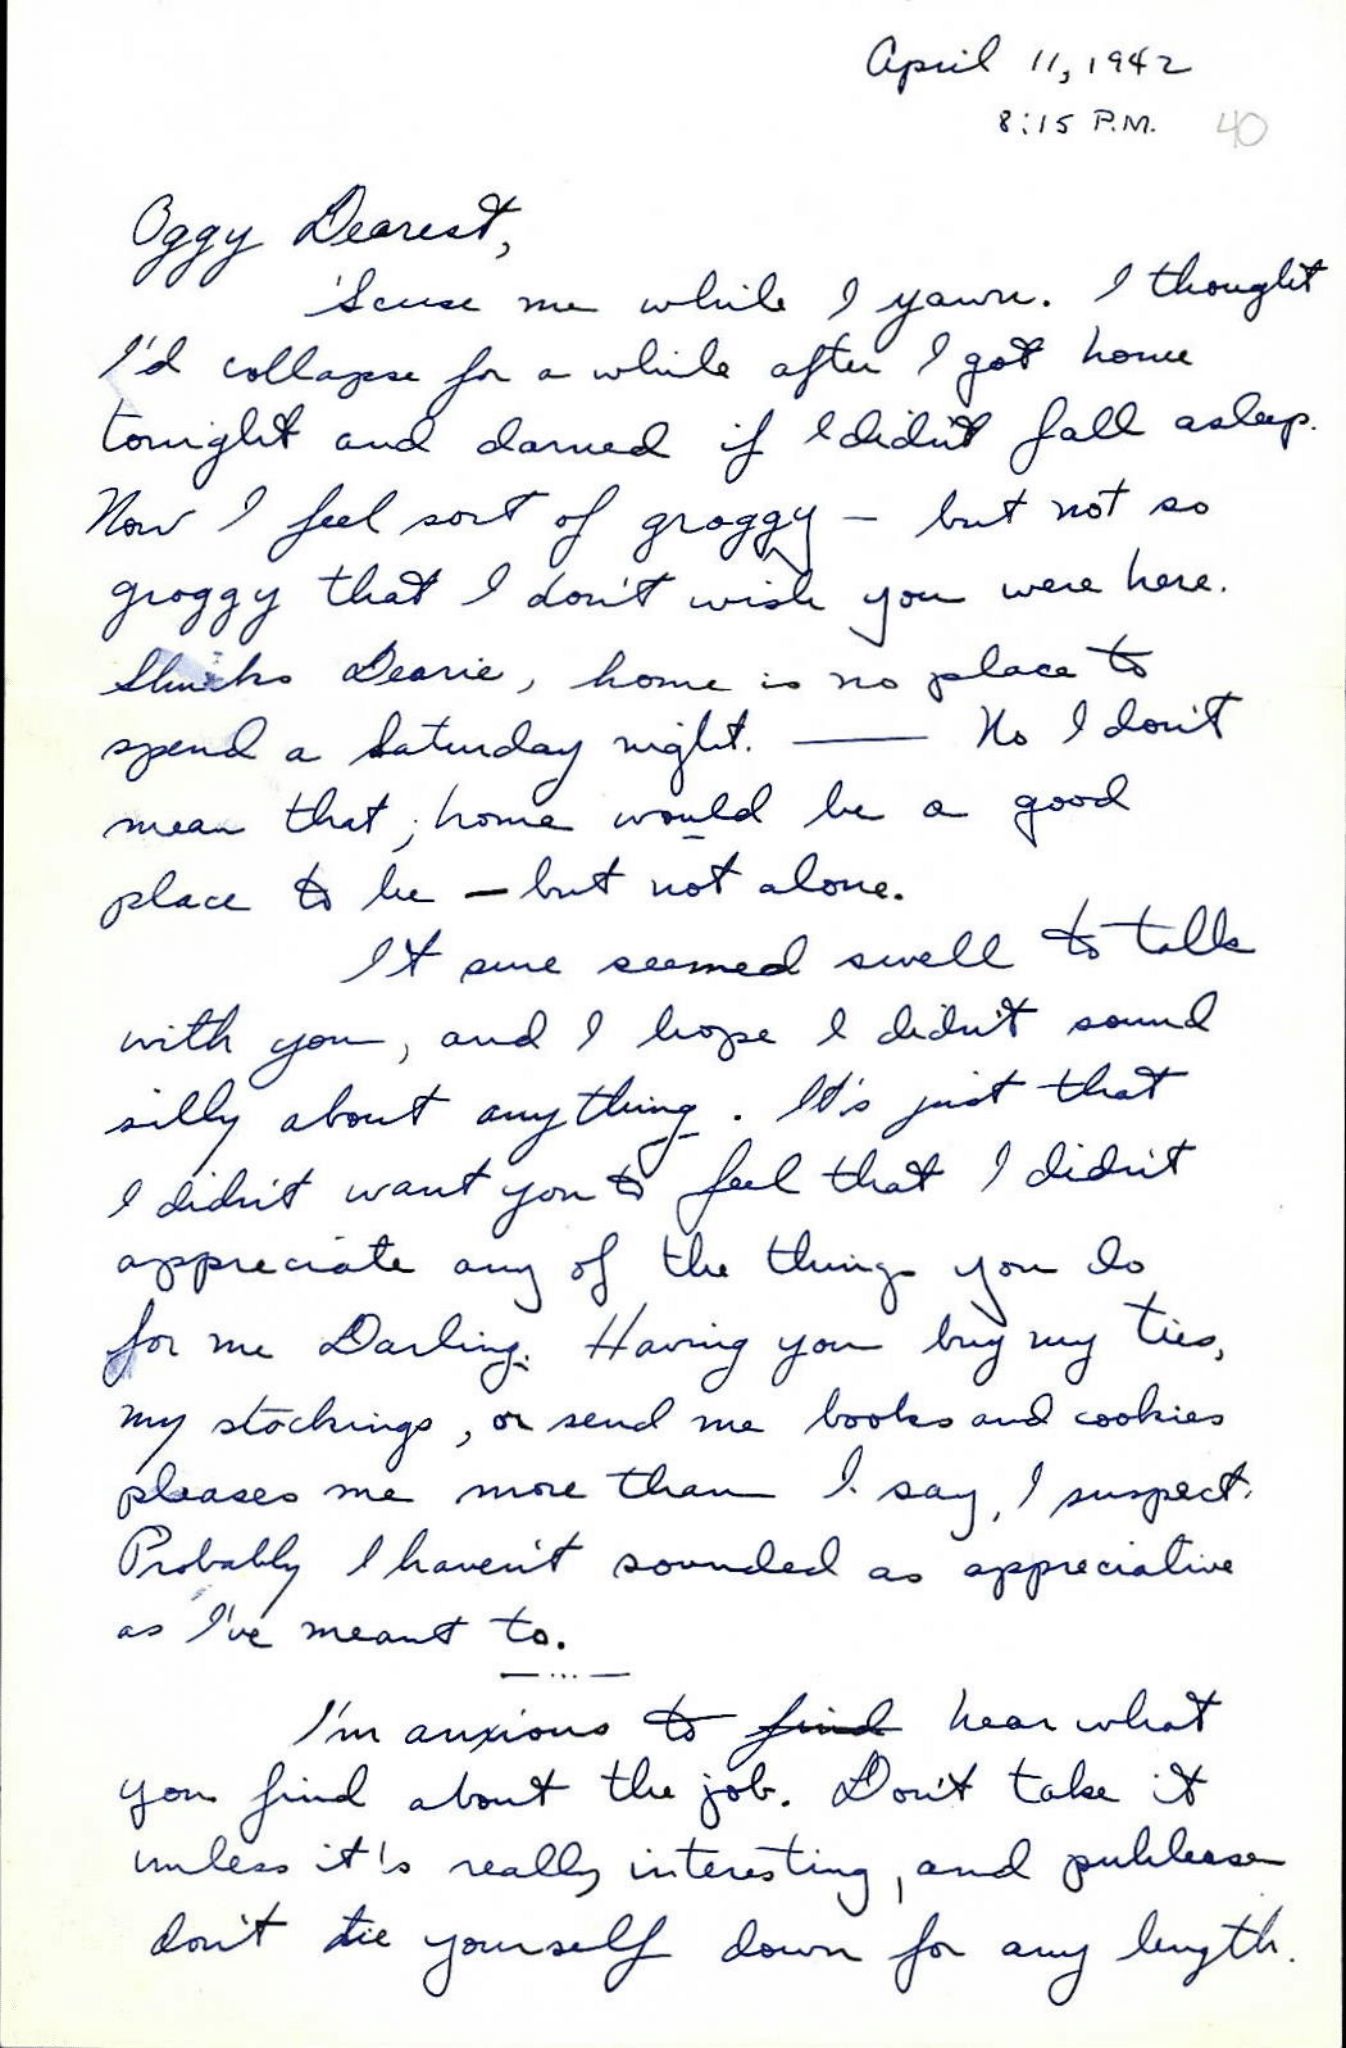 April 11, 1942
8:15 P.M. 40
Oggy Dearest,
'Scuse me while I yawn. I thought
I'd collapse for a while after I got home
tonight and darned if I didn't fall asleep.
Now I feel sort of groggy – but not so
groggy that I don't wish you were here.
Shucks Dearie, home is no place to
spend a Saturday night. —— No I don't
mean that; home would be a good
place to be – but not alone.
It sure seemed swell to talk
with you, and I hope I didn't sound
silly about anything. It's just that
I didn't want you to feel that I didn't
appreciate any of the things you do
for me Darling. Having you buy my ties,
my stockings, or send me books and cookies
pleases me more than I say, I suspect.
Probably I haven't sounded as appreciative
as I've meant to.
—...—
I'm anxious to find hear what
you find about the job. Don't take it
unless it's really interesting, and puhlease
don't tie yourself down for any length.